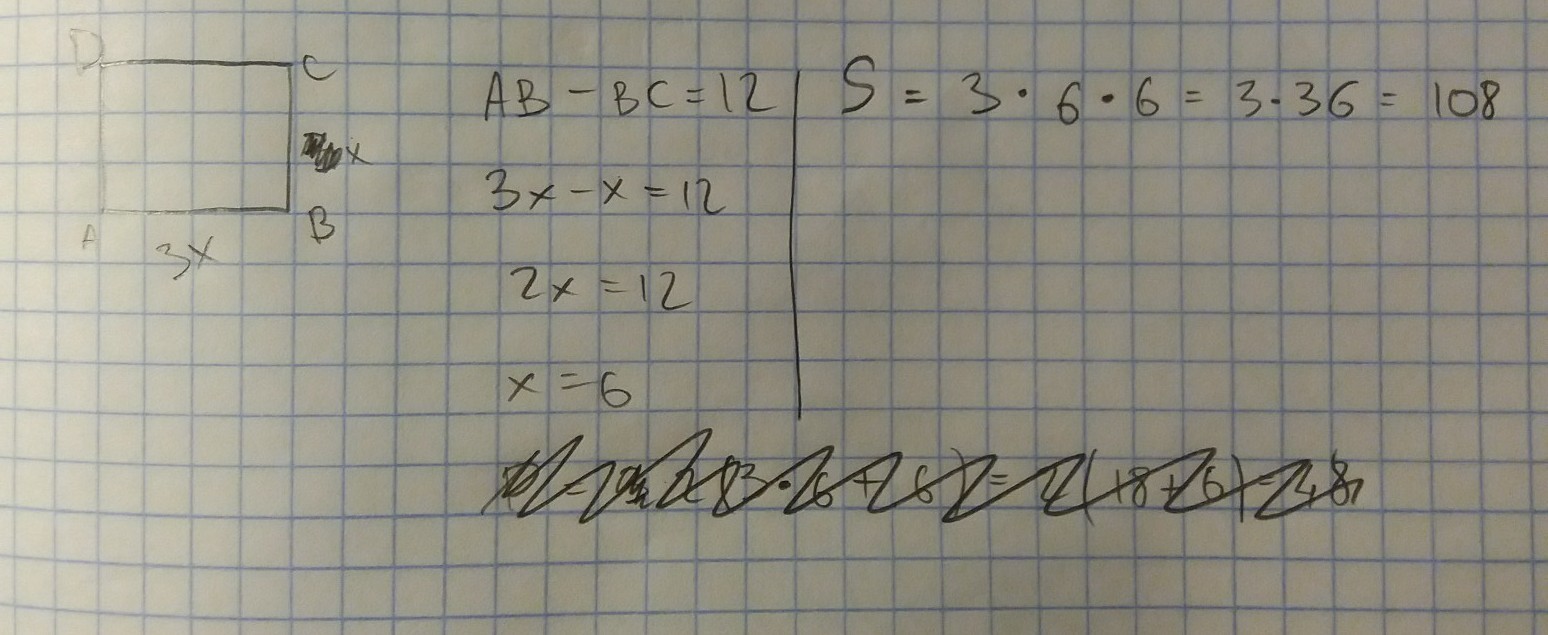 D
C
x
A
B
3x
AB - BC = 12
3x - x = 12
2x = 12
x = 6
S = 3 · 6 · 6 = 3 · 36 = 108